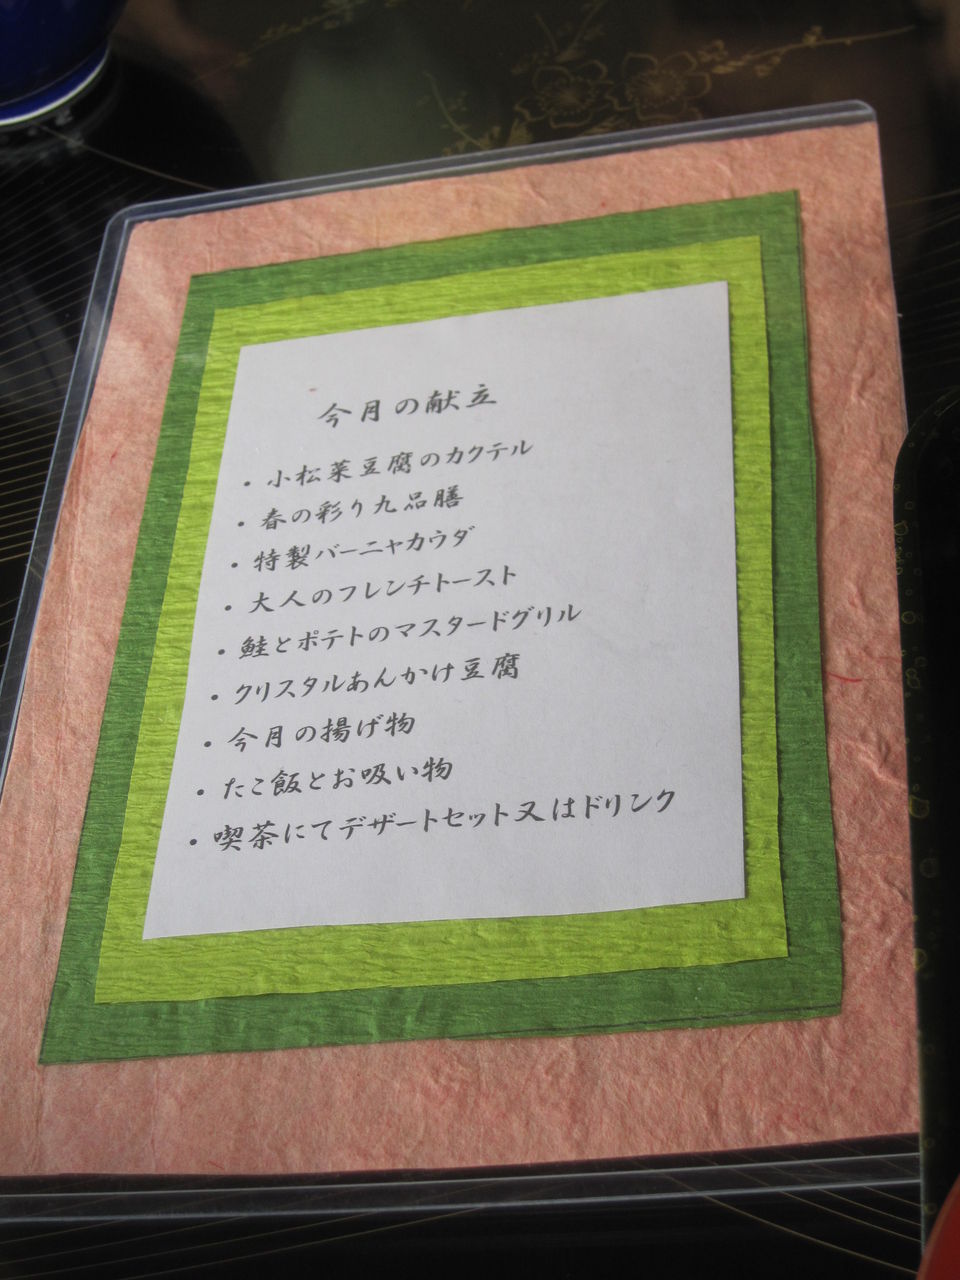 今月の献立
・小松菜豆腐のカクテル
・春の彩り九品膳
・特製バーニャカウダ
・大人のフレンチトースト
・鮭とポテトのマスタードグリル
・クリスタルあんかけ豆腐
・今月の揚げ物
・たこ飯とお吸い物
・喫茶にてデザートセット又はドリンク